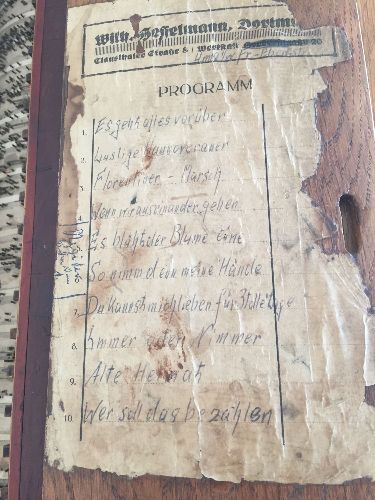 Wilh. Hesselmann, Dortmun
Clausthaler Straße 8 | Werkstatt
PROGRAMM
1. Es geht alles vorüber
2. Lustige
3. Florentiner - Marsch
4. Wenn wir auseinander gehen
Es blüht der Blume eine
So nimm den meine Hände
7. Du kannst mich lieben für 3 tolle Tage
8. Immer oder nimmer
9. Alte Heimat
10. Wer soll das bezahlen